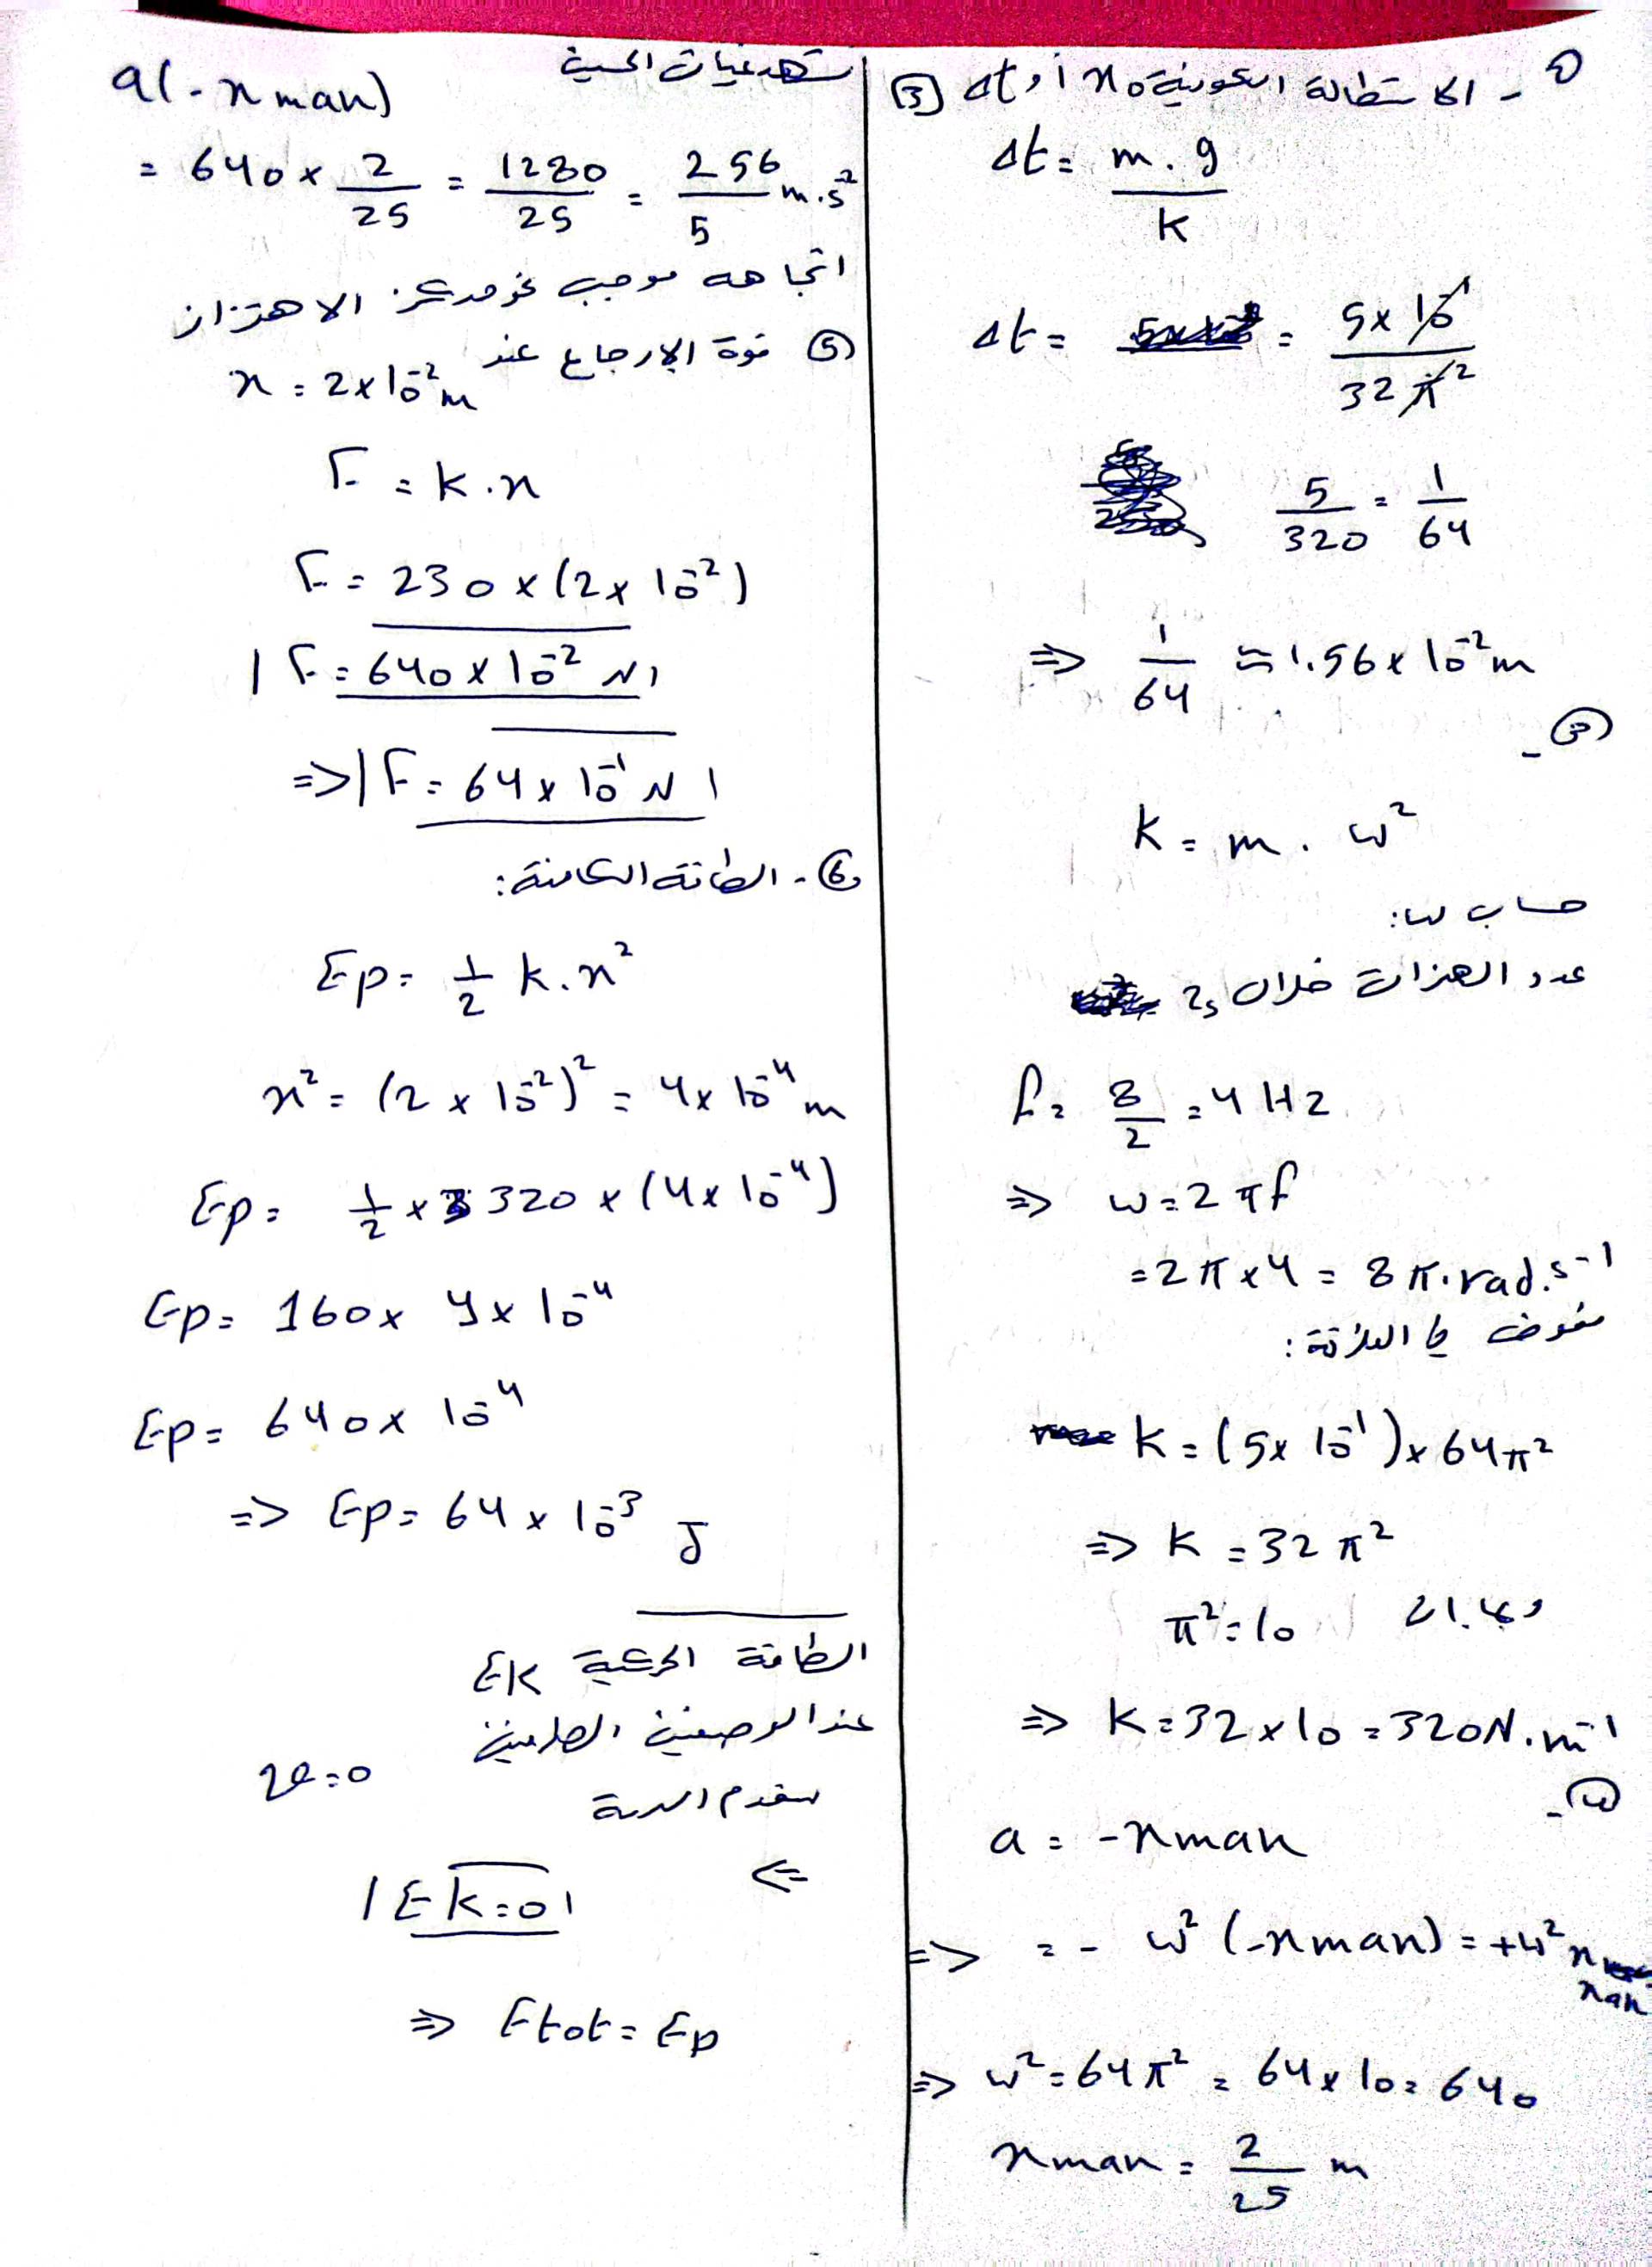 ① - الاستطالة السكونية x₀ أو Δt [3]
Δt = m.g / k
Δt = = 5x10⁻¹ / 32π²
5/320 = 1/64
⇒ 1/64 ≈ 1.56x10⁻²m
③ -
K = m . ω²
حساب ω:
عدد الهزات خلال 2s
f = 8/2 = 4 Hz
⇒ ω = 2πf
= 2π x 4 = 8π.rad.s⁻¹
نعوض في العلاقة:
K = (5x10⁻¹) x 64π²
⇒ K = 32π²
وبما ان π² = 10
⇒ K = 32 x 10 = 320N.m⁻¹
a = -xmax
⇒ = - ω² (-xmax) = +ω² xmax
⇒ ω² = 64π² = 64 x 10 = 640
xmax = 2/25 m
a(-xmax)
= 640 x 2/25 = 1280/25 = 256/5 m.s²
اتجاهه موجب نحو مركز الاهتزاز
⑤ قوة الإرجاع عند
x = 2x10⁻²m
F = k.x
F = 230 x (2x10⁻²)
| F = 640 x 10⁻² N |
⇒ | F = 64 x 10⁻¹ N |
⑥ - الطاقة الكامنة:
Ep = 1/2 k.x²
x² = (2 x 10⁻²)² = 4x10⁻⁴ m
Ep = 1/2 x 320 x (4x10⁻⁴)
Ep = 160 x 4x10⁻⁴
Ep = 640x10⁻⁴
⇒ Ep = 64 x 10⁻³ J
الطاقة الحركية EK
عند الوضعين
تنعدم السرعة v = 0
⇐
| Ek = 0 |
⇒ Etot = Ep